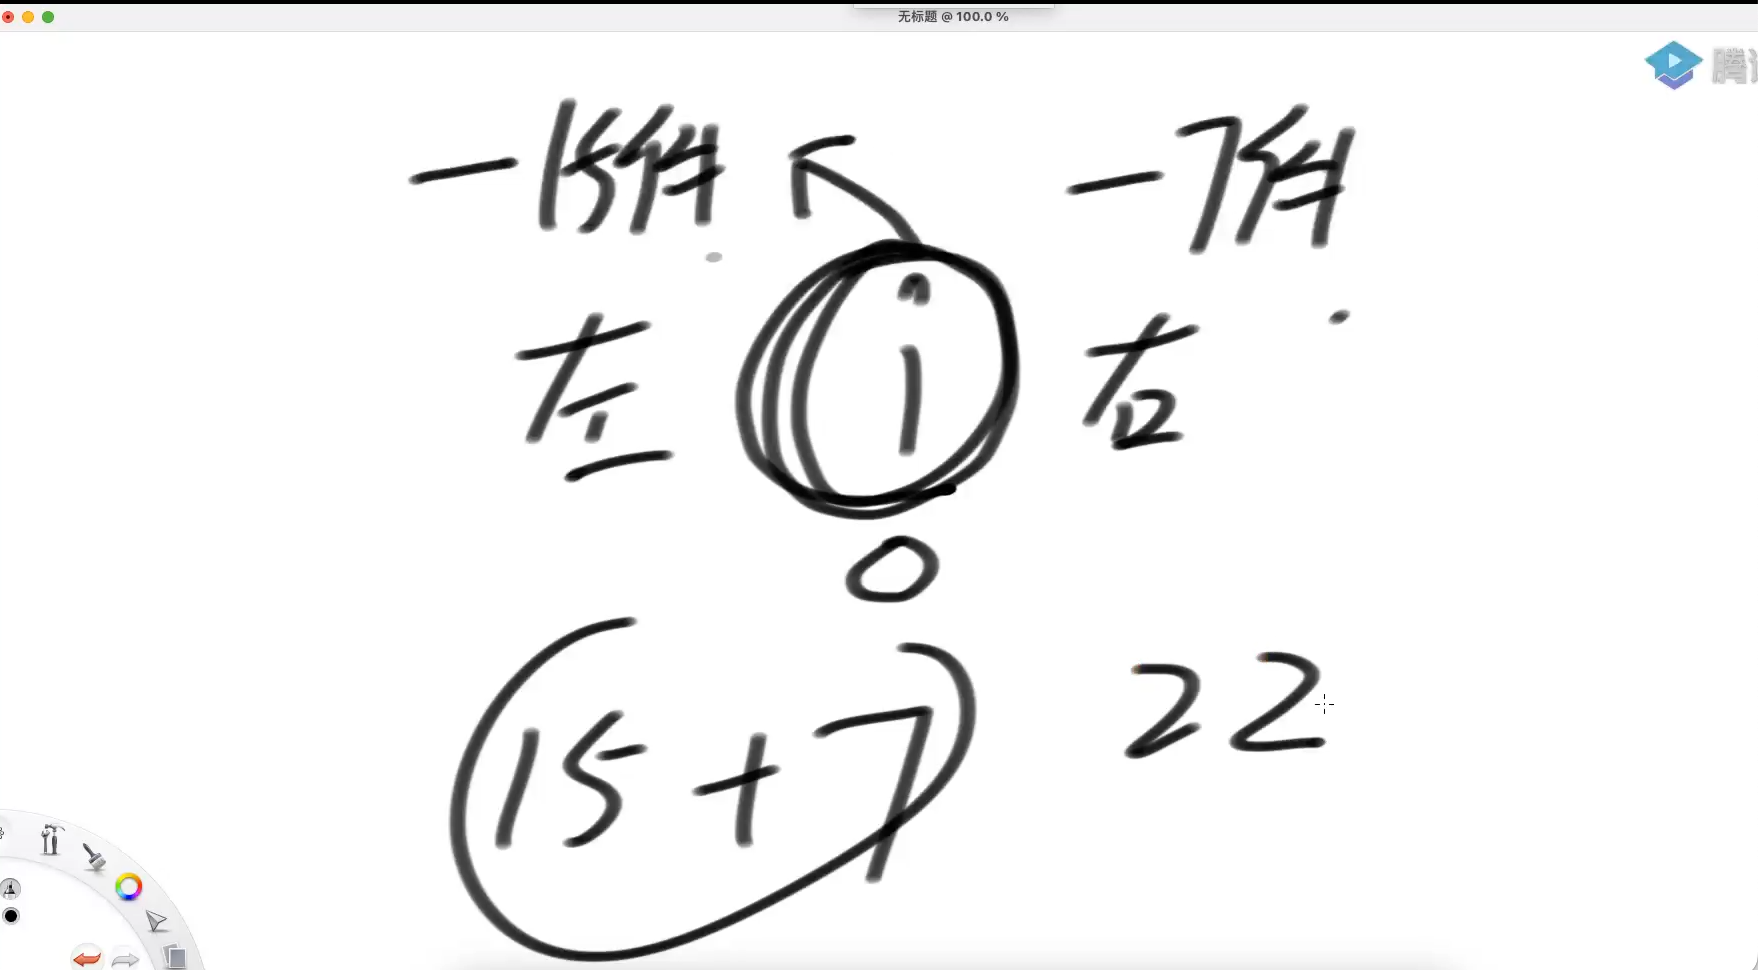 无标题 @ 100.0 %
一15件 一7件
左 1 右
0
(15+7) 22